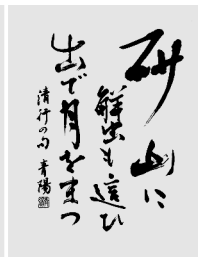 研山に
蟹も這ひ
出で月をまつ
清行の句 青陽